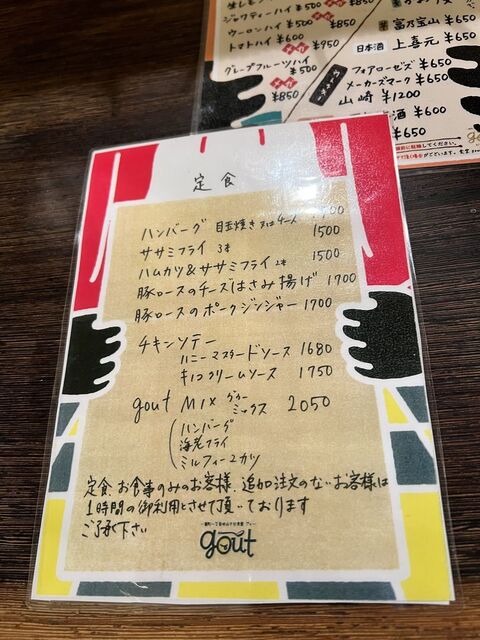 ジャワティーハイ ¥500 メガ ¥850
ウーロンハイ ¥500 メガ ¥850
トマトハイ ¥600 メガ ¥950
グレープフルーツハイ
¥500
メガ ¥850
富乃宝山 ¥650
日本酒 上喜元 ¥650
ウイスキー
フォアローゼズ ¥650
メーカーズマーク ¥650
山崎 ¥1200
酒 ¥600
¥650
定食
ハンバーグ 目玉焼き又はチーズ
1500
ササミフライ 3本 1500
ハムカツ&ササミフライ 2本 1500
豚ロースのチーズはさみ揚げ 1700
豚ロースのポークジンジャー 1700
チキンソテー
ハニーマスタードソース 1680
キノコクリームソース 1750
gout MIX グゥーミックス 2050
ハンバーグ
海老フライ
ミルフィーユカツ
定食、お食事のみのお客様、追加注文のないお客様は
1時間の御利用とさせて頂いております
ご了承下さい
gout